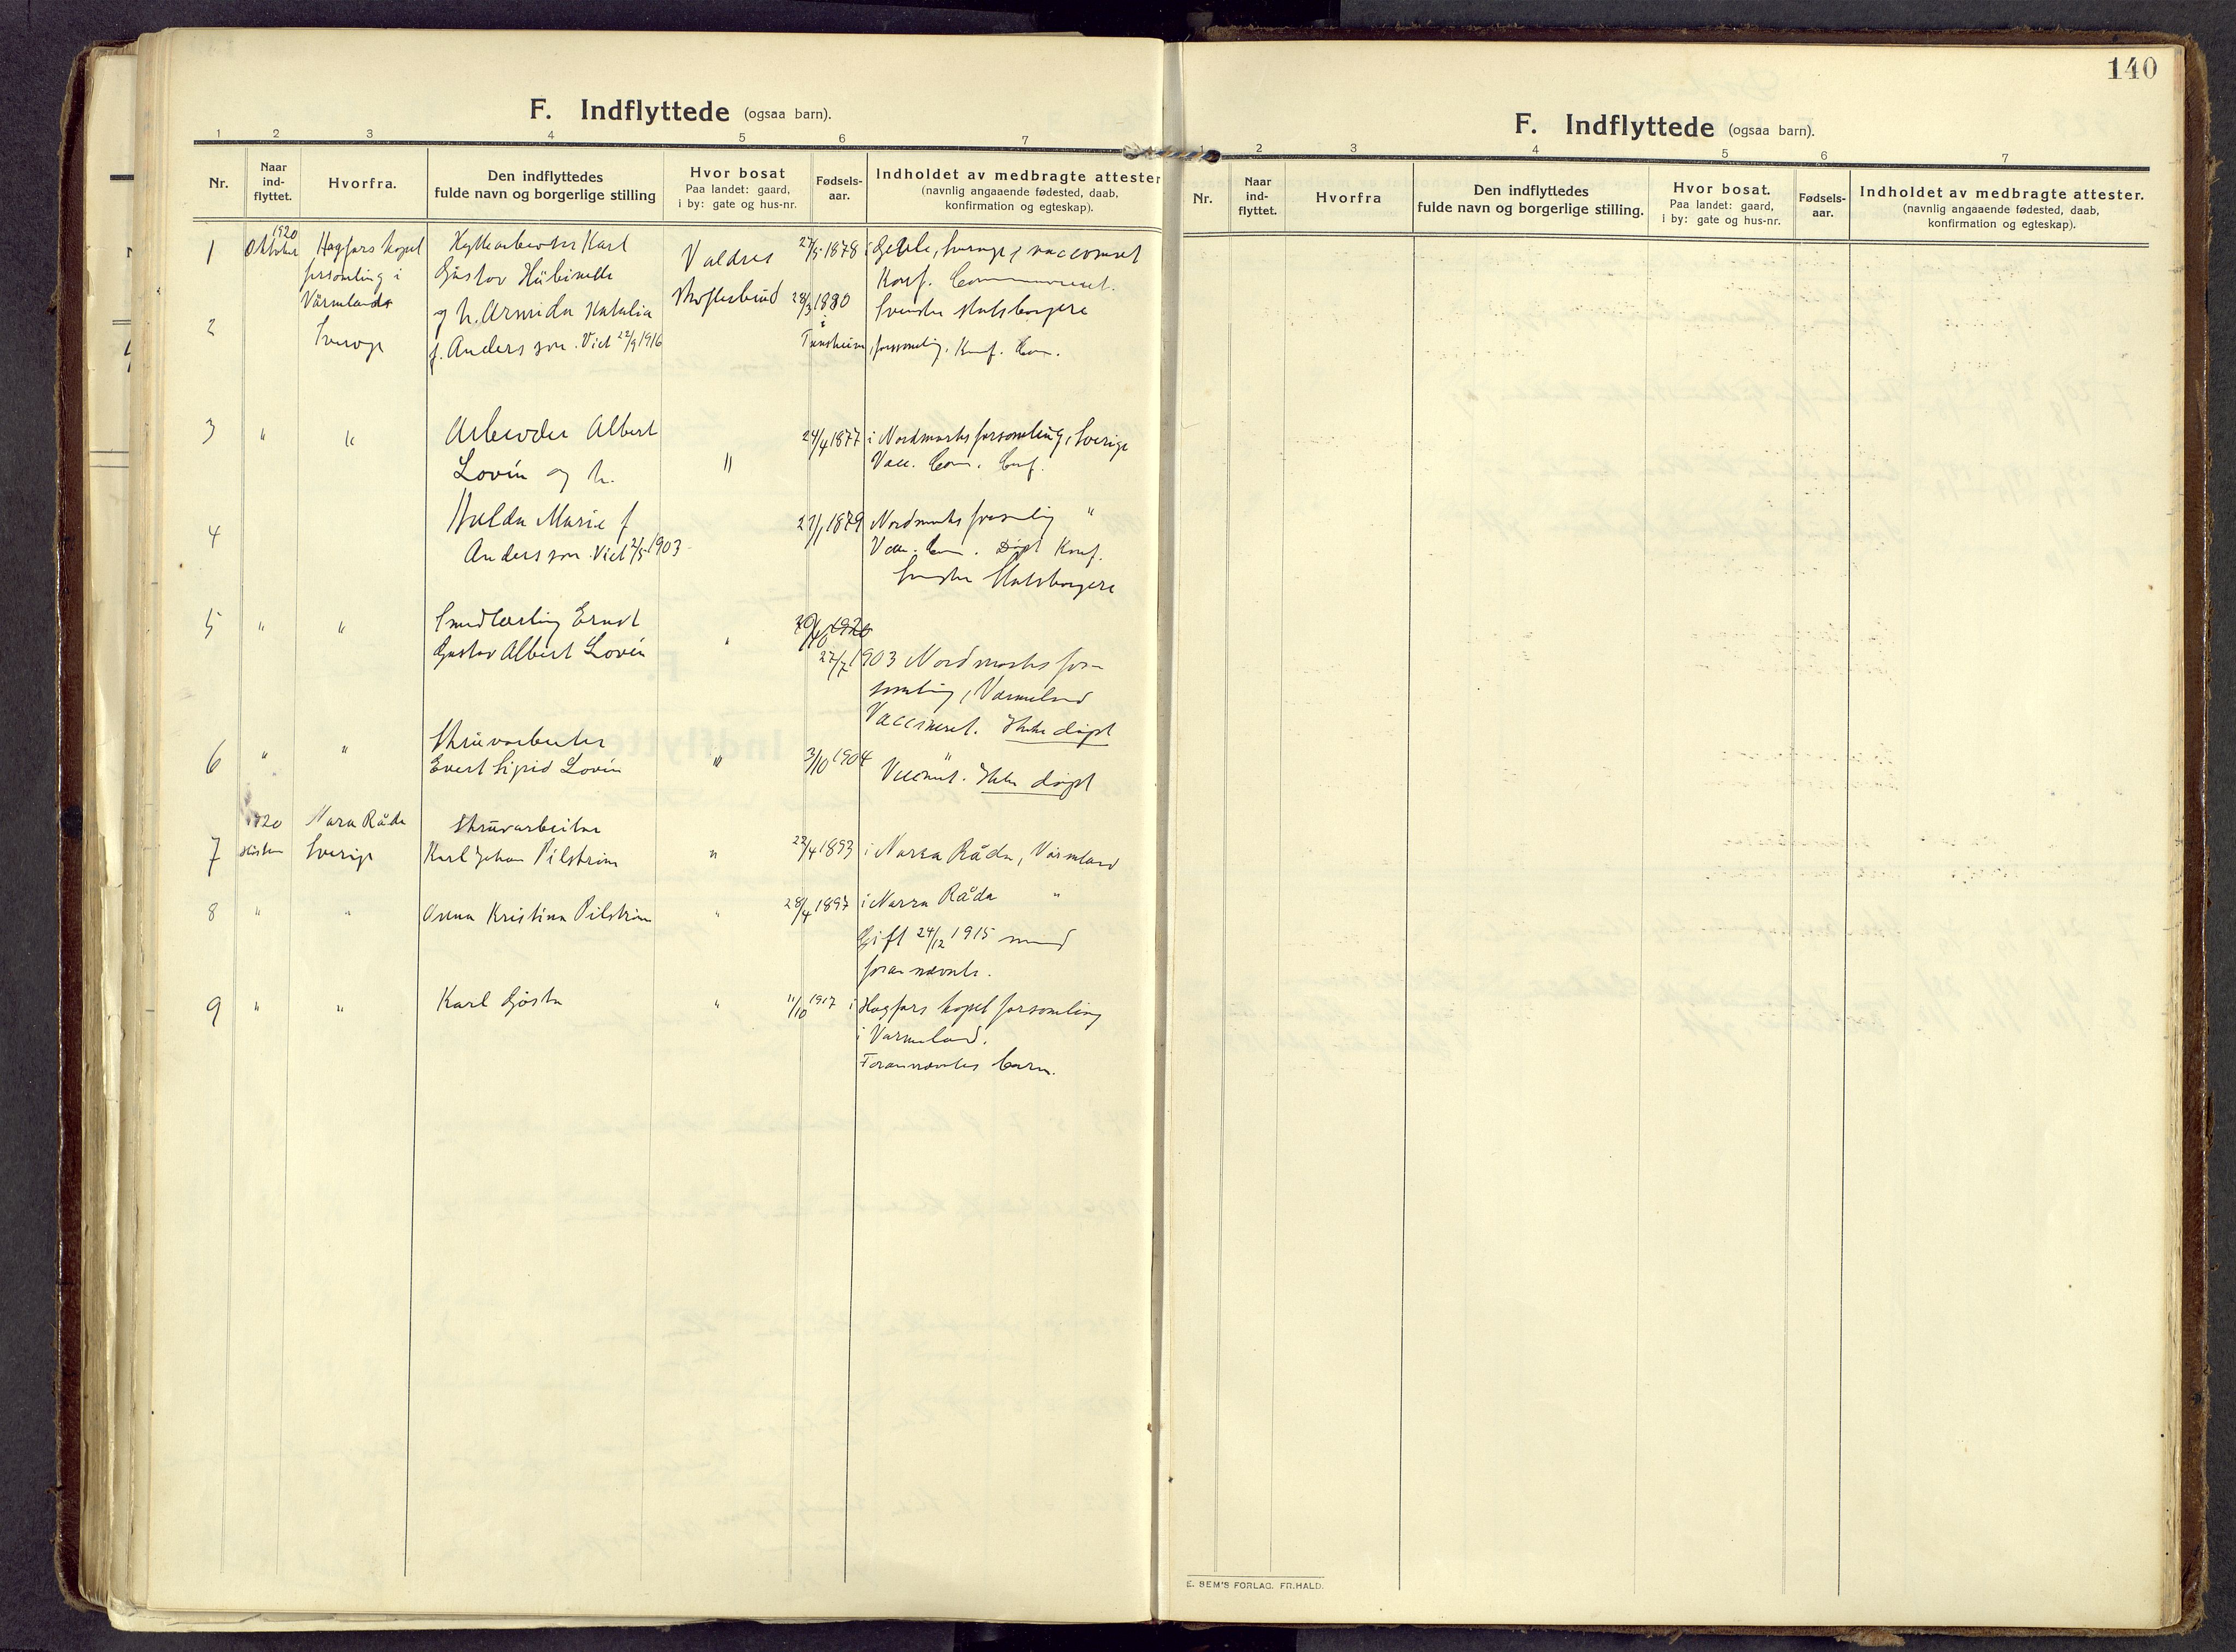 140
F. Indflyttede (ogsaa barn).
1 2 3 4 5 6 7
Nr. Naar ind-flyttet. Hvorfra. Den indflyttedes fulde navn og borgerlige stilling Hvor bosat Paa landet: gaard, i by: gate og hus-nr. Fødsels-aar. Indholdet av medbragte attester (navnlig angaaende fødested, daab, konfirmation og egteskap).
1920
1 Oktober Hagfors kapel Karl Valdres 27/5 1878 i Gefle, Sverige, vaccineret
forsamling i Gustav Hübinette Konf. Communiceret.
Värmlands og h. Armida Natalia Skofterud 28/3 1880 Svenske statsborgere
2 Sverige f. Andersson. Viet 22/9 1916 i forsamling. Konf. Com.
3 " " Arbeider Albert 24/4 1877 i Nordmarks forsamling, Sverige
Lovén og h. " Vacc. Com. Conf.
Hulda Marie f 21/1 1879 Nordmarks forsamling "
4 Andersson. Viet 2/5 1903 Vacc. Com. Døpt Konf.
Svenske Statsborgere
5 " " Smedlærling Ernst
Gustav Albert Lovén " 27/7 1903 Nordmarks for-
samling, Värmland
Vaccineret. Ikke døpt
Skruvarbeiter
6 " " Evert Sigrid Lovén " 3/10 1904 "
Vaccineret. Ikke døpt
1920 Nora Råda Skruvarbeiter
7 Høsten Sverige Karl Johan Pilström " 23/4 1893 i Norra Råda, Värmland
8 " " Anna Kristina Pilström " 28/4 1897 i Norra Råda "
Gift 24/12 1915 med
forannævnte.
9 " " Karl Gösta " 11/10 1917 i Hagfors kapel forsamling
i Värmland.
Forannævntes barn.
F. Indflyttede (ogsaa barn).
1 2 3 4 5 6 7
Nr. Naar ind-flyttet. Hvorfra Den indflyttedes fulde navn og borgerlige stilling. Hvor bosat. Paa landet: gaard, i by: gate og hus-nr. Fødsels-aar. Indholdet av medbragte attester. (navnlig angaaende fødested, daab, konfirmation og egteskap).
E. SEM'S FORLAG. FR.HALD.